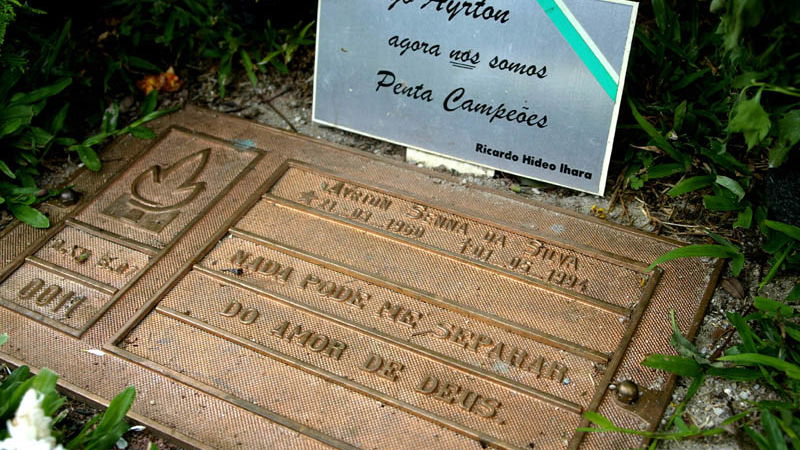 Ayrton
agora nos somos
Penta Campeões
Ricardo Hideo Ihara
AYRTON SENNA DA SILVA
21.03.1960 01.05.1994
NADA PODE ME SEPARAR
DO AMOR DE DEUS.
0011